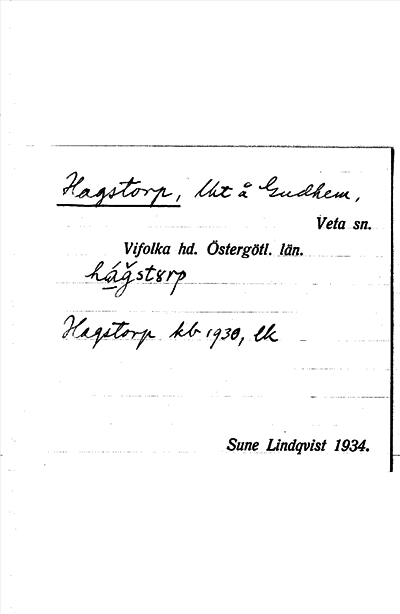 Hagstorp, lht å Gudhem,
Veta sn.
Vifolka hd. Östergötl. län.
háğstɤrp
Hagstorp kb 1930, Ek
Sune Lindqvist 1934.